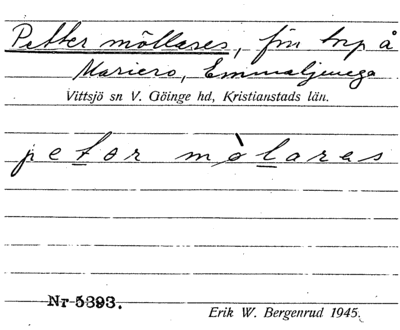 Petter möllares, fm torp å
Mariero, Emmaljunga
Vittsjö sn V. Göinge hd, Kristianstads län.
petər mòlaras
Nr 5393.
Erik W. Bergenrud 1945.